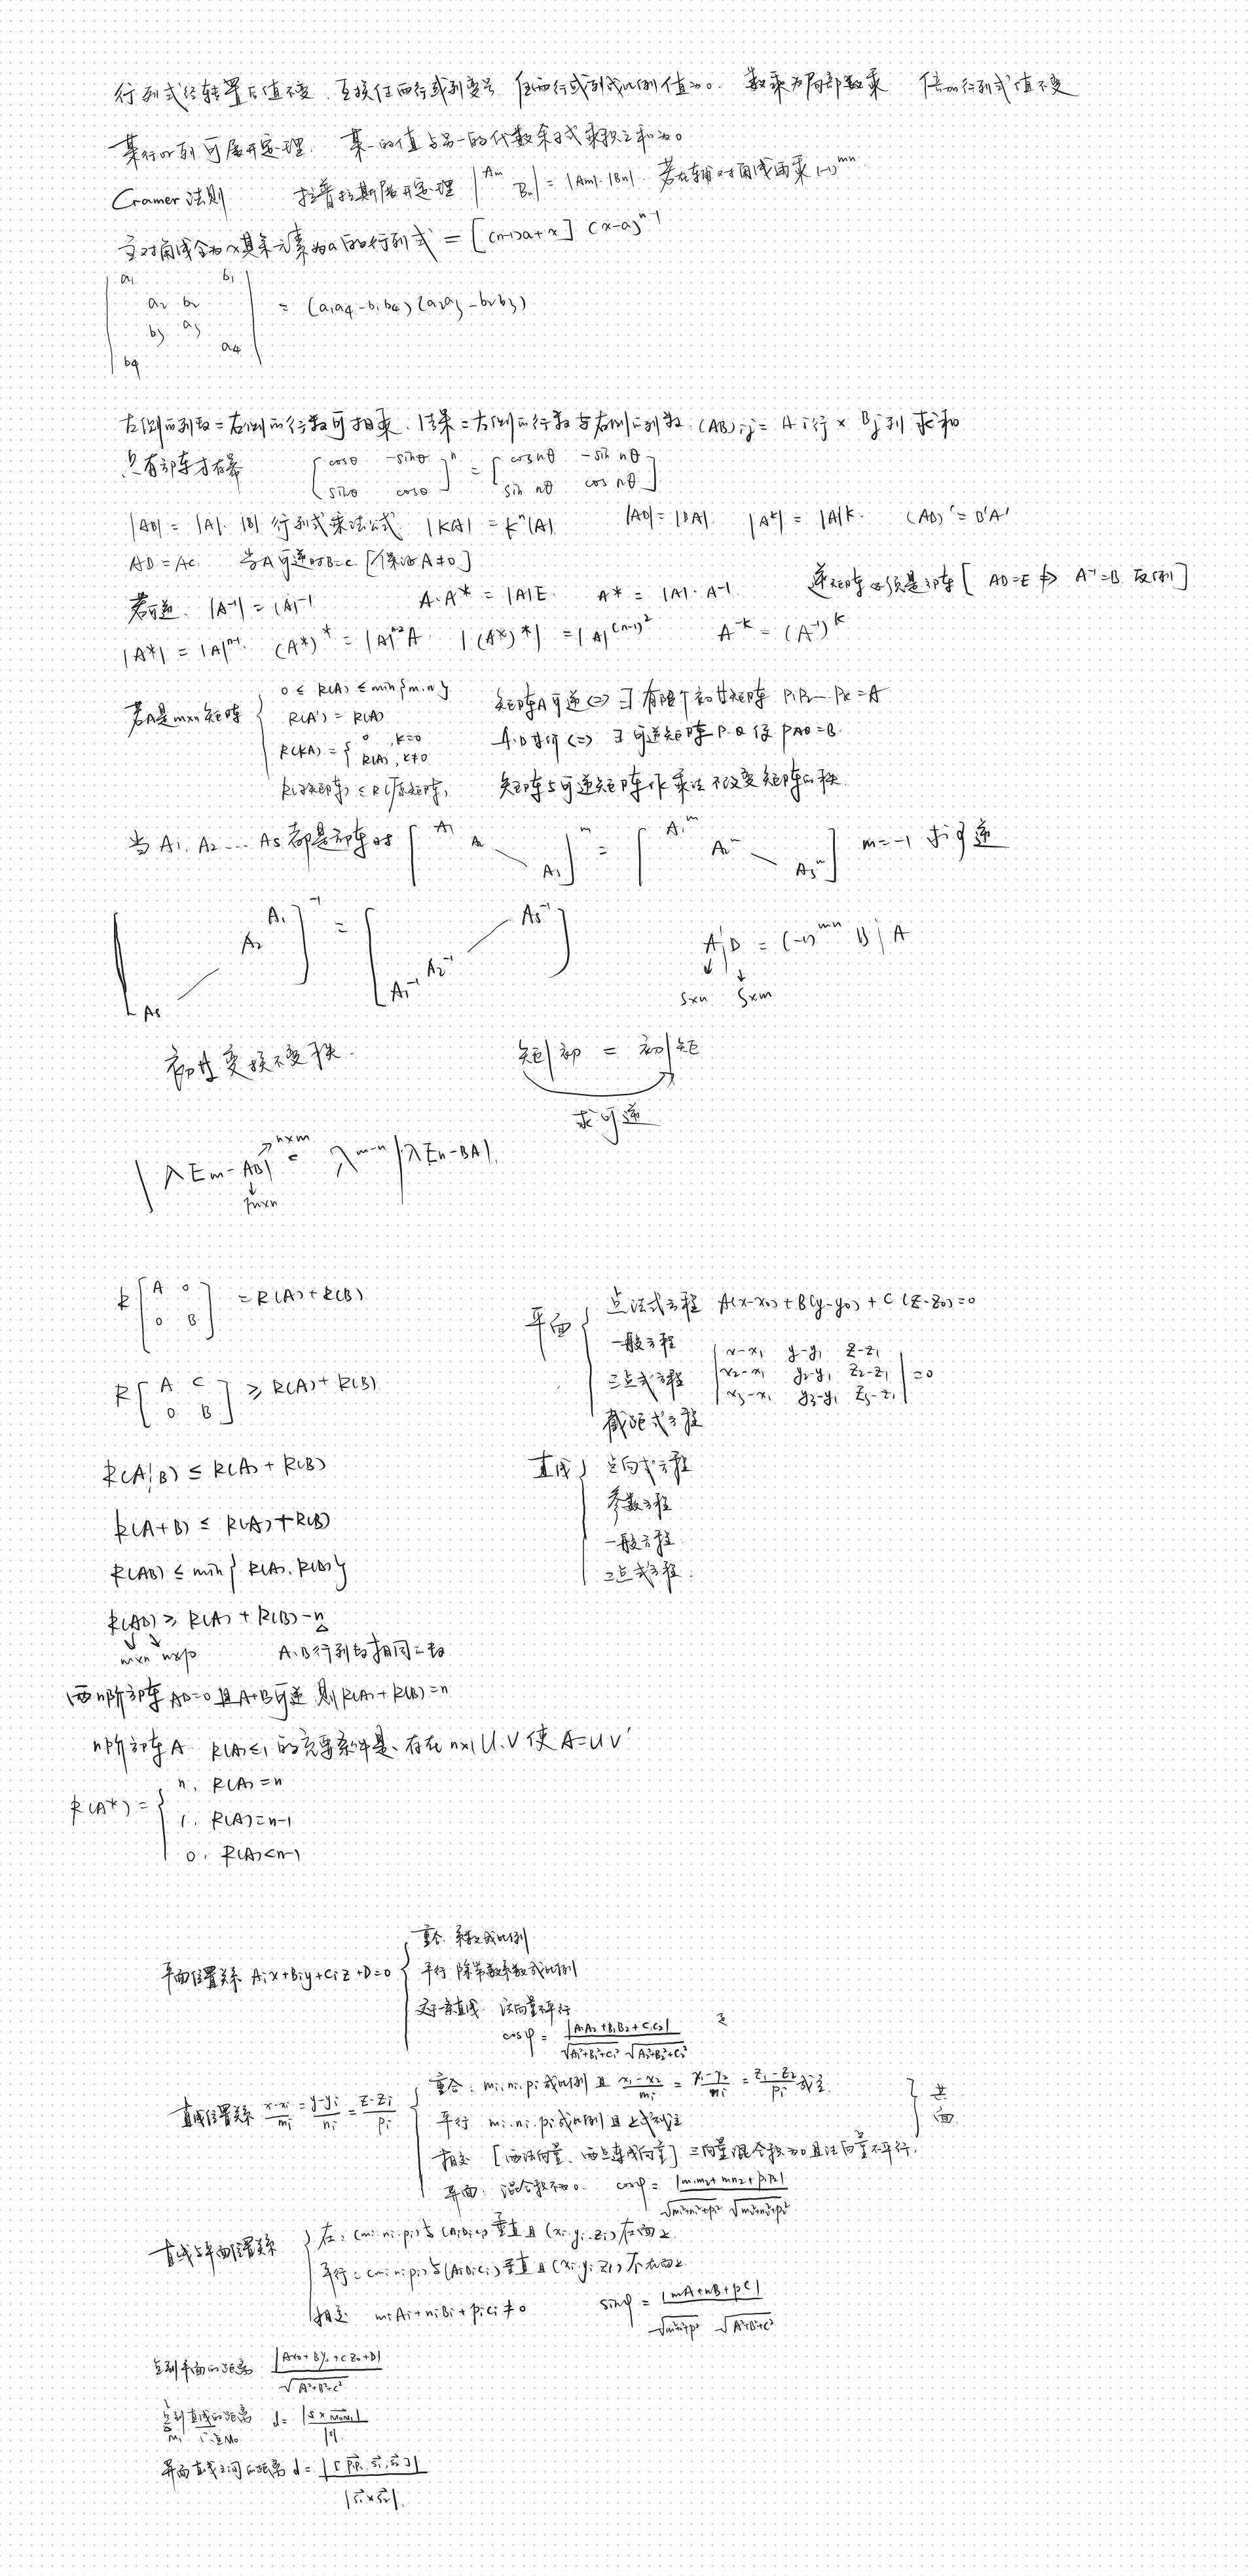 行列式经转置后值不变. 互换任两行或列变号. 任两行或列成比例值为0. 数乘为局部数乘 倍加行列式值不变
某行or列可展开定理. 某一的值与另一的代数余子式乘积之和为0
Cramer法则 拉普拉斯展开定理 | Am Bn | = |Am|·|Bn|. 若在辅对角线再乘(-1)^mn
主对角线全为x其余元素为a的行列式 = [(n-1)a+x] (x-a)^n-1
| a1 b1
a2 b2
b3 a3
b4 a4 | = (a1a4-b1b4)(a2a3-b2b3)
左侧的列数=右侧的行数可相乘. 结果=左侧的行数与右侧的列数. (AB)ij = A i行 × B j列 求和
只有方阵才有幂 [cosθ -sinθ sinθ cosθ]^n = [cos nθ -sin nθ sin nθ cos nθ]
|AB| = |A|·|B| 行列式乘法公式 |KA| = K^n|A| |AB| = |BA|. |A^k| = |A|^k. (AB)' = B'A'
AB = AC 当A可逆时B=C [保证A≠0]
若可逆. |A^-1| = |A|^-1 A·A* = |A|E. A* = |A|·A^-1. 逆矩阵必须是方阵 [ AB=E ⇏ A^-1=B. 反例]
|A*| = |A|^n-1. (A*)* = |A|^n-2 A. |(A*)*| = |A|^(n-1)^2 A^-k = (A^-1)^k
若A是m×n矩阵 { 0 ≤ R(A) ≤ min{m.n} 矩阵A可逆 <=> ∃ 有限个初等矩阵 P1P2…Pk = A
R(A') = R(A) A.B等价 <=> ∃ 可逆矩阵P.Q使PAQ=B.
R(KA) = { 0 , K=0 R(A), K≠0
R(子矩阵) ≤ R(原矩阵) 矩阵与可逆矩阵作乘法不改变矩阵的秩.
当A1. A2 … As 都是方阵时 [ A1 A2 As ]^m = [ A1^m A2^m As^m ] m=-1 求可逆
[ A1 A2 As ]^-1 = [ As^-1 A2^-1 A1^-1 ] A|B = (-1)^mn B|A
s×n s×m
初等变换不变秩. 矩|初 = 初|矩
求可逆
|λEm-AB| = λ^m-n |λEn-BA|.
n×m
m×n
R[A 0 0 B] = R(A)+R(B)
R[A C 0 B] ≥ R(A)+R(B)
R(A|B) ≤ R(A)+R(B)
R(A+B) ≤ R(A)+R(B)
R(AB) ≤ min{R(A), R(B)}
R(AB) ≥ R(A)+R(B)-n
m×n n×p A.B行列数相同的数
两n阶方阵AB=0且A+B可逆 则R(A)+R(B)=n
n阶方阵A. R(A)≤1的充要条件是、存在n×1 U.V使A=UV'
R(A*) = { n. R(A)=n
1. R(A)=n-1
0. R(A)<n-1
平面 { 点法式方程 A(x-x0)+B(y-y0)+C(z-z0)=0
一般方程
三点式方程 | x-x1 y-y1 z-z1 x2-x1 y2-y1 z2-z1 x3-x1 y3-y1 z3-z1 | = 0
截距式方程
直线 { 点向式方程
参数方程
一般方程.
二点式方程.
平面位置关系 Aix+Biy+Ciz+D=0 { 重合: 系数成比例
平行 除常数系数成比例
交于一条直线 法向量不平行
cosφ = |A1A2+B1B2+C1C2| / √A1²+B1²+C1² √A2²+B2²+C2²
直线位置关系 x-xi/mi = y-yi/ni = z-zi/pi { 重合: mi.ni.pi成比例 且 x1-x2/mi = y1-y2/ni = z1-z2/pi 成立.
平行 mi.ni.pi成比例 且上式不成立 } 共面
相交 [两法向量、两点连成向量] 三向量混合积为0且法向量不平行.
异面: 混合积不为0. cosφ = |m1m2+n1n2+p1p2| / √m1²+n1²+p1² √m2²+n2²+p2²
直线与平面位置关系 { 在: (mi.ni.pi)与(AiBiCi)垂直且(xi.yi.zi)在面上.
平行: (mi.ni.pi)与(AiBiCi)垂直且(xi.yi.zi)不在面上
相交 miAi+niBi+piCi≠0 sinφ = |mA+nB+pC| / √m²+n²+p² √A²+B²+C²
点到平面的距离 |Ax0+By0+Cz0+D| / √A²+B²+C²
点到直线的距离 d = |s×M0M1| / |s|
M1 M0
异面直线之间的距离 d = |[P1P2. s1. s2]| / |s1×s2|.